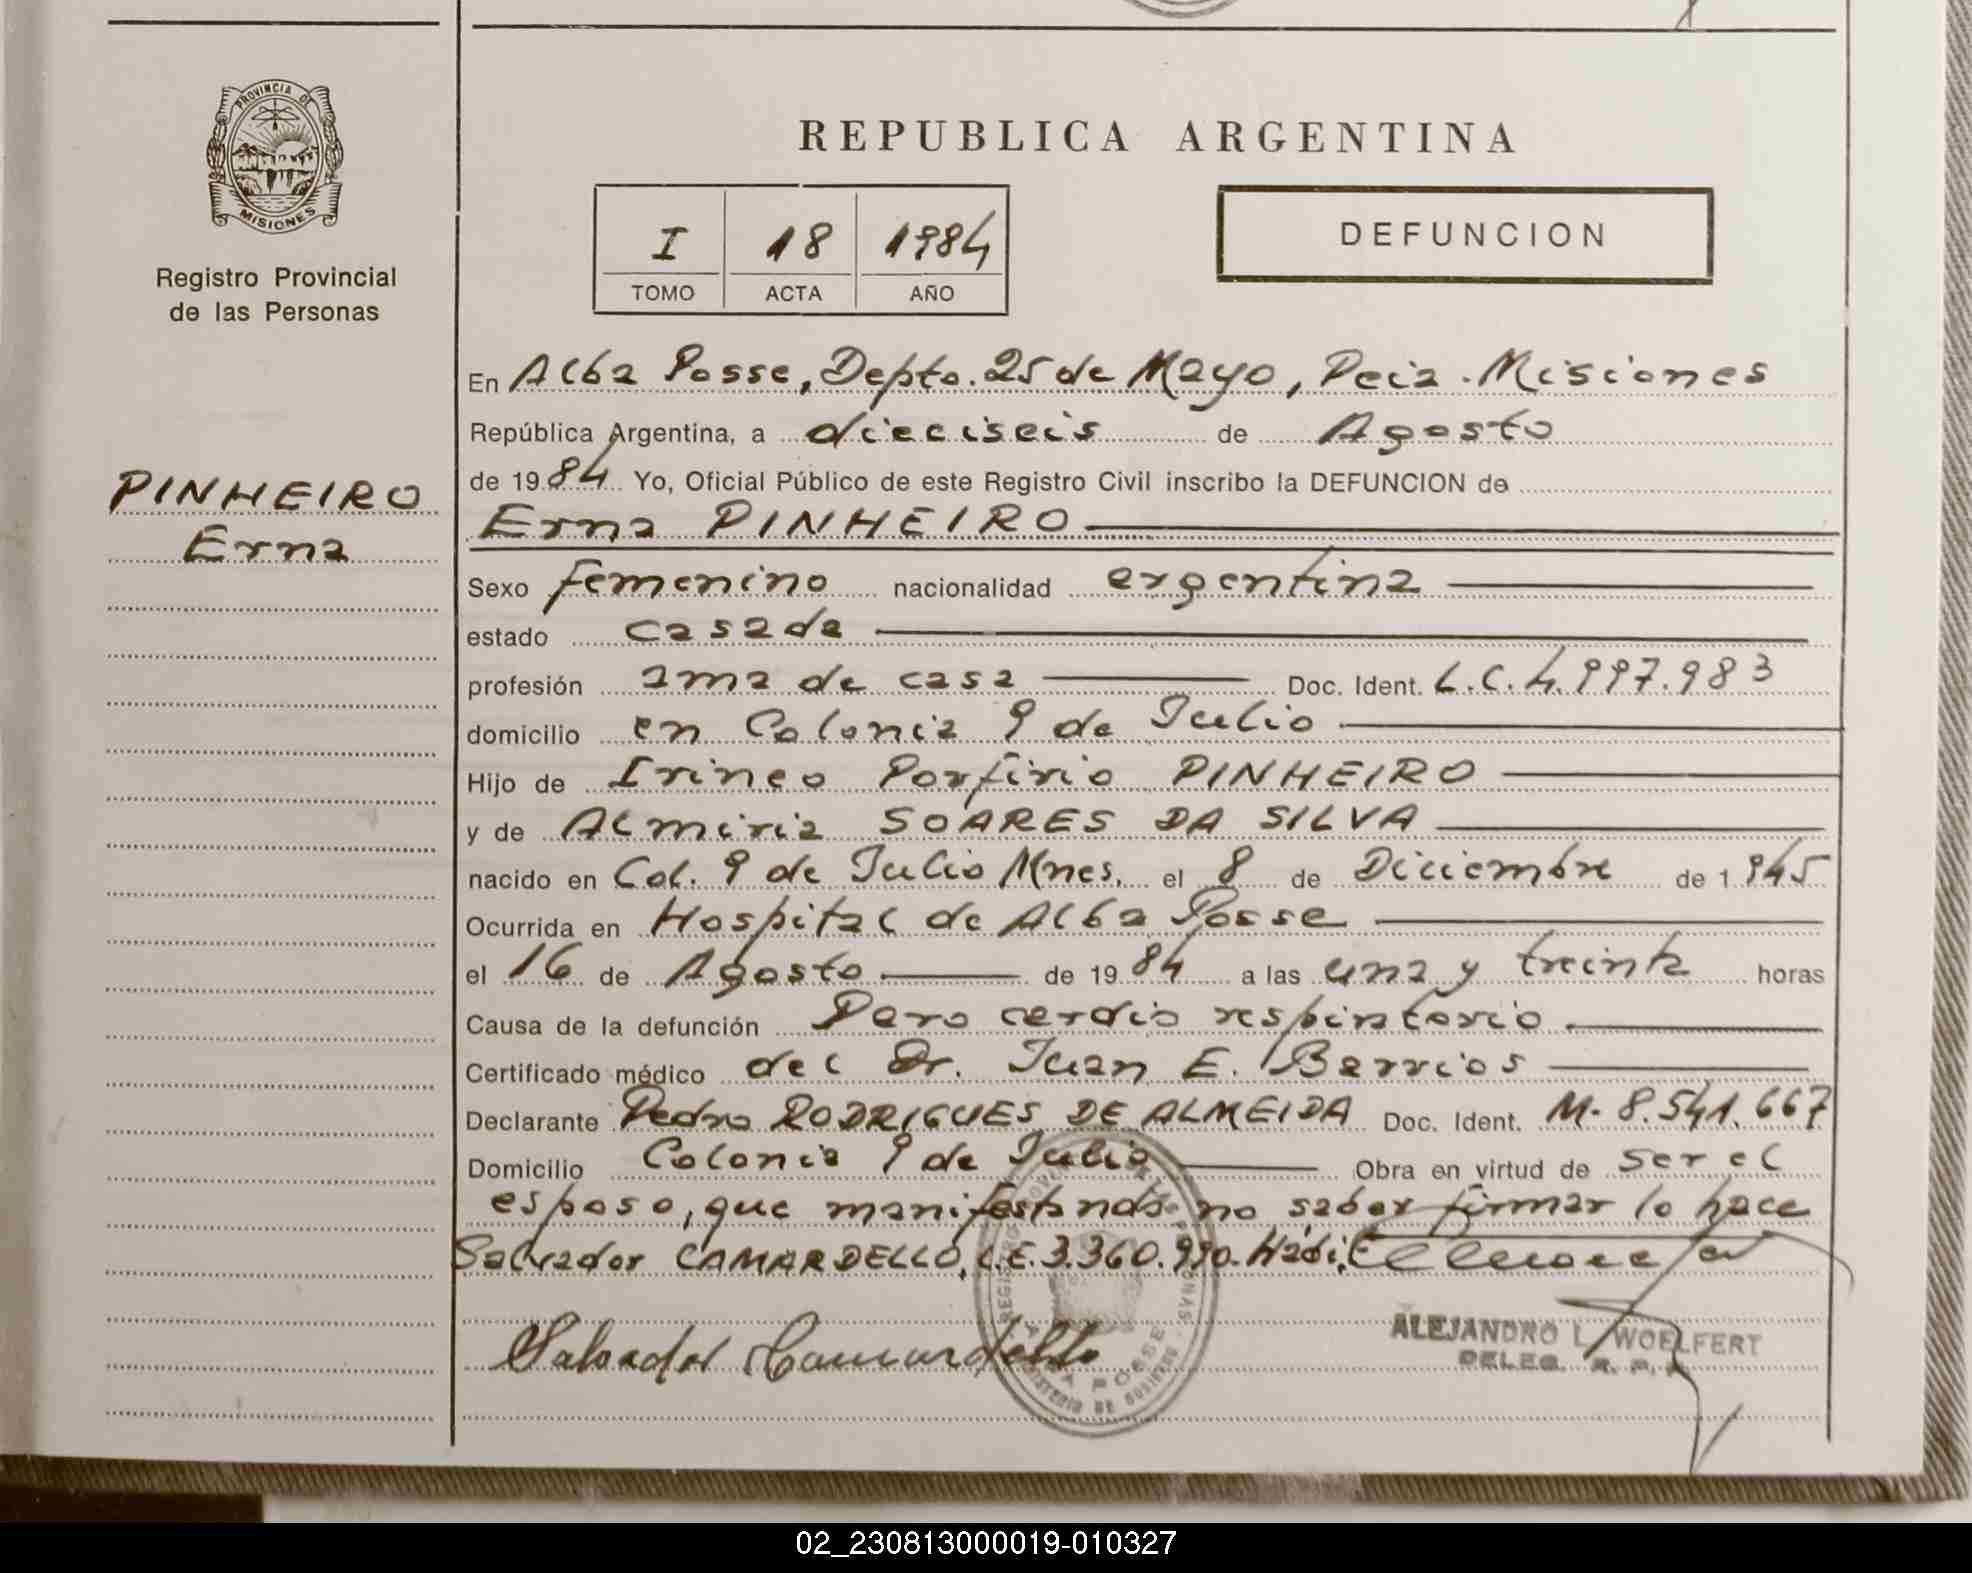 PROVINCIA DE
MISIONES
Registro Provincial
de las Personas
PINHEIRO
Erna
REPUBLICA ARGENTINA
I 18 1984
TOMO ACTA AÑO
DEFUNCION
En Alba Posse, Depto. 25 de Mayo, Pcia. Misiones
República Argentina, a dieciseis de Agosto
de 1984 Yo, Oficial Público de este Registro Civil inscribo la DEFUNCION de
Erna PINHEIRO
Sexo femenino nacionalidad argentina
estado casada
profesión ama de casa Doc. Ident. L.C. 4.997.983
domicilio en Colonia 9 de Julio
Hijo de Irineo Porfirio PINHEIRO
y de Almiria SOARES DA SILVA
nacido en Col. 9 de Julio Mnes. el 8 de Diciembre de 1945
Ocurrida en Hospital de Alba Posse
el 16 de Agosto de 1984 a las una y treinta horas
Causa de la defunción Paro cardio respiratorio
Certificado médico del Dr. Juan E. Barrios
Declarante Pedro RODRIGUES DE ALMEIDA Doc. Ident. M. 8.541.667
Domicilio Colonia 9 de Julio Obra en virtud de ser el
esposo, que manifestando no saber firmar lo hace
Salvador CAMARDELLO, L.E. 3.360.990. Hábil
Salvador Camardello
ALBA POSSE
ALEJANDRO L. WOELFERT
DELEG. R. P.
02_230813000019-010327